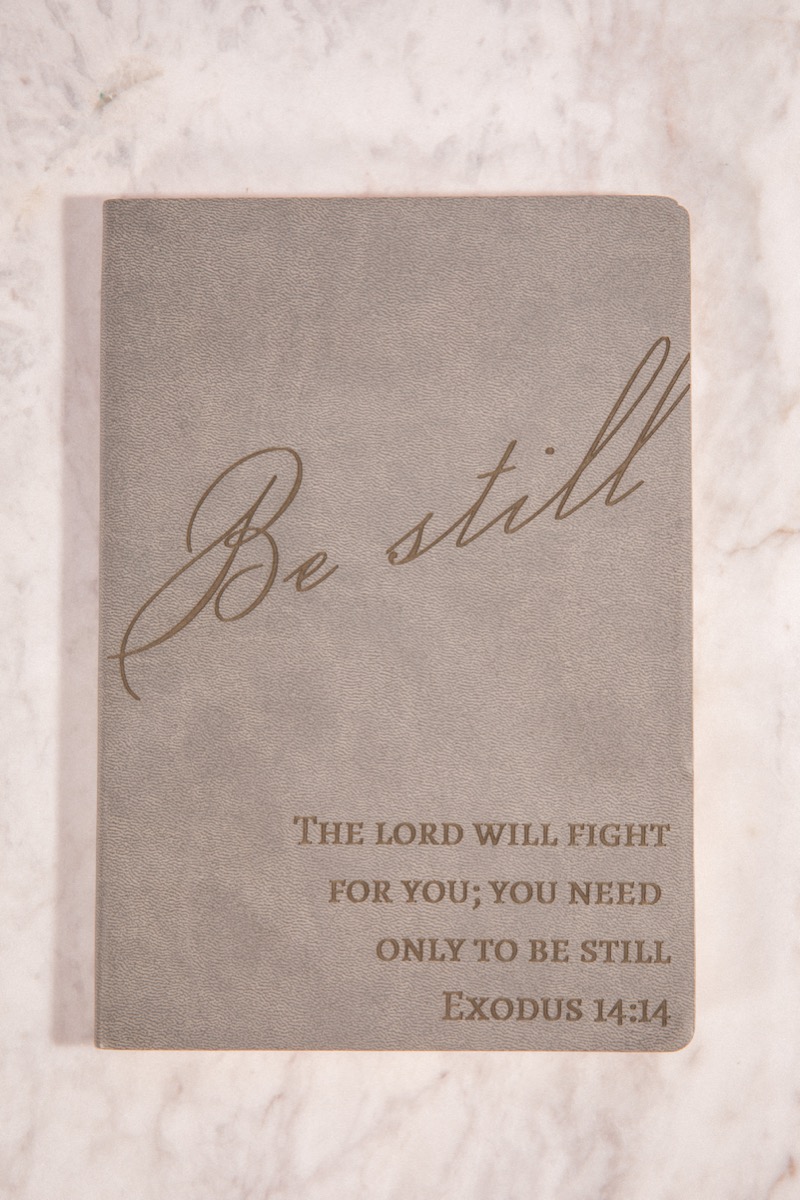 Be still
The Lord will fight
for you; you need
only to be still
Exodus 14:14